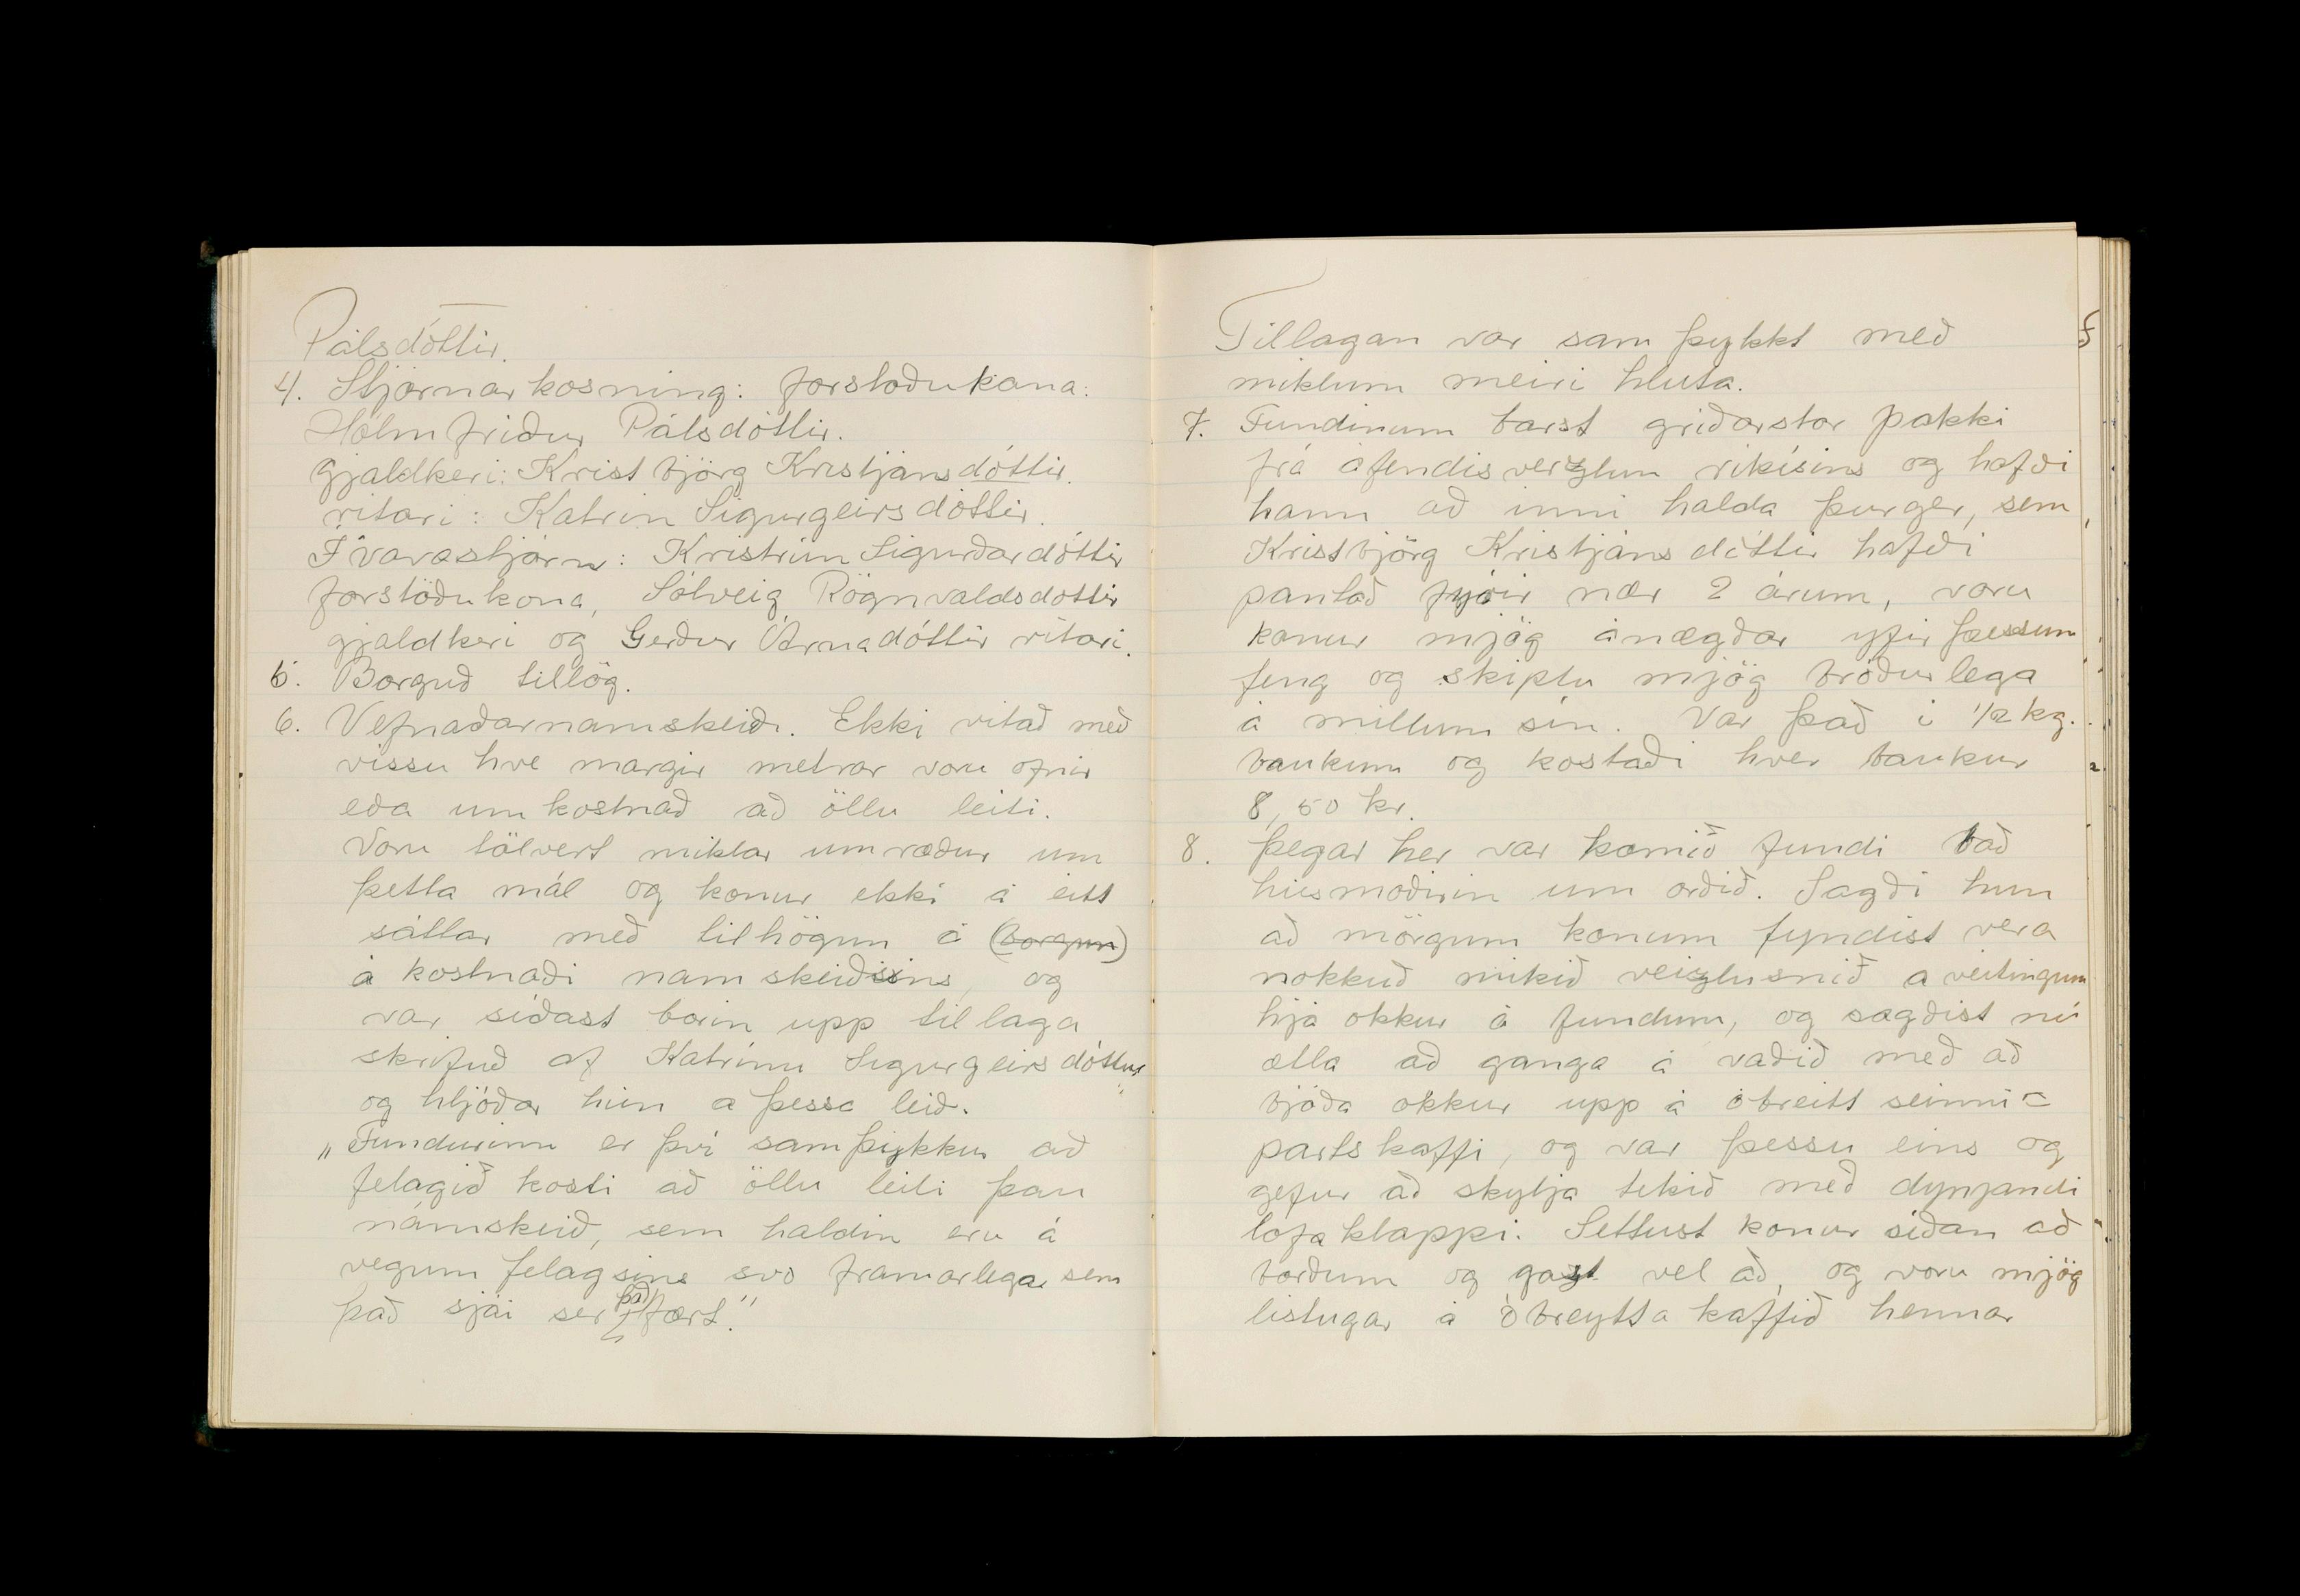 Pálsdóttir.
4. Stjórnarkosning: forstoðukona:
Hólmfriður Pálsdóttir.
gjaldkeri: Kristbjörg Kristjánsdóttir.
ritari: Katrín Sigurgeirsdóttir.
Í varastjórn: Kristrún Sigurðardóttir
forstöðukona, Sólveig Rögnvaldsdottir
gjaldkeri og Gerður Árnadóttir ritari.
5. Borguð tillög.
6. Vefnaðarnamskeið. Ekki vitað með
vissu hve margir metrar voru ofnir
eða umkostnað að öllu leiti.
Voru tölvert miklar umræður um
þetta mál og konur ekki á eitt
sáttar með tilhögun á (borgun)
á kostnaði namskeiðsins, og
var síðast borin upp tillaga
skrifuð af Katrínu Sigurgeirsdóttur
og hljóðar hún a þessa leið.
„Fundurinn er því samþykkur að
felagið kosti að öllu leiti þau
námskeið, sem haldin eru á
vegum felagsins svo framarlega sem
það sjái ser það fært."
Tillagan var samþykkt með
miklum meiri hluta.
7. Fundinum barst griðarstor pakki
frá áfendisverzlun rikisins og hafði
hann að inni halda þurger, sem
Kristbjörg Kristjánsdóttir hafði
pantað fyrir nær 2 árum, voru
konur mjög ánægðar yfir þessum
feng og skiptu mjög bróðurlega
á millum sín. Var það i 1/2 kg.
baukum og kostaði hver baukur
8,50 kr.
8. Þegar her var komið fundi bað
húsmoðirin um orðið. Sagði hun
að mörgum konum fyndist vera
nokkuð mikið veizlusnið a veitingum
hjá okkur á fundum, og sagðist nú
ætla að ganga á vaðið með að
bjóða okkur upp á óbreitt seinni=
partskaffi, og var þessu eins og
gefur að skylja tekið með dynjandi
lofaklappi. Settust konur síðan að
borðum og gazt vel að, og voru mjög
listugar á óbreytta kaffið hennar